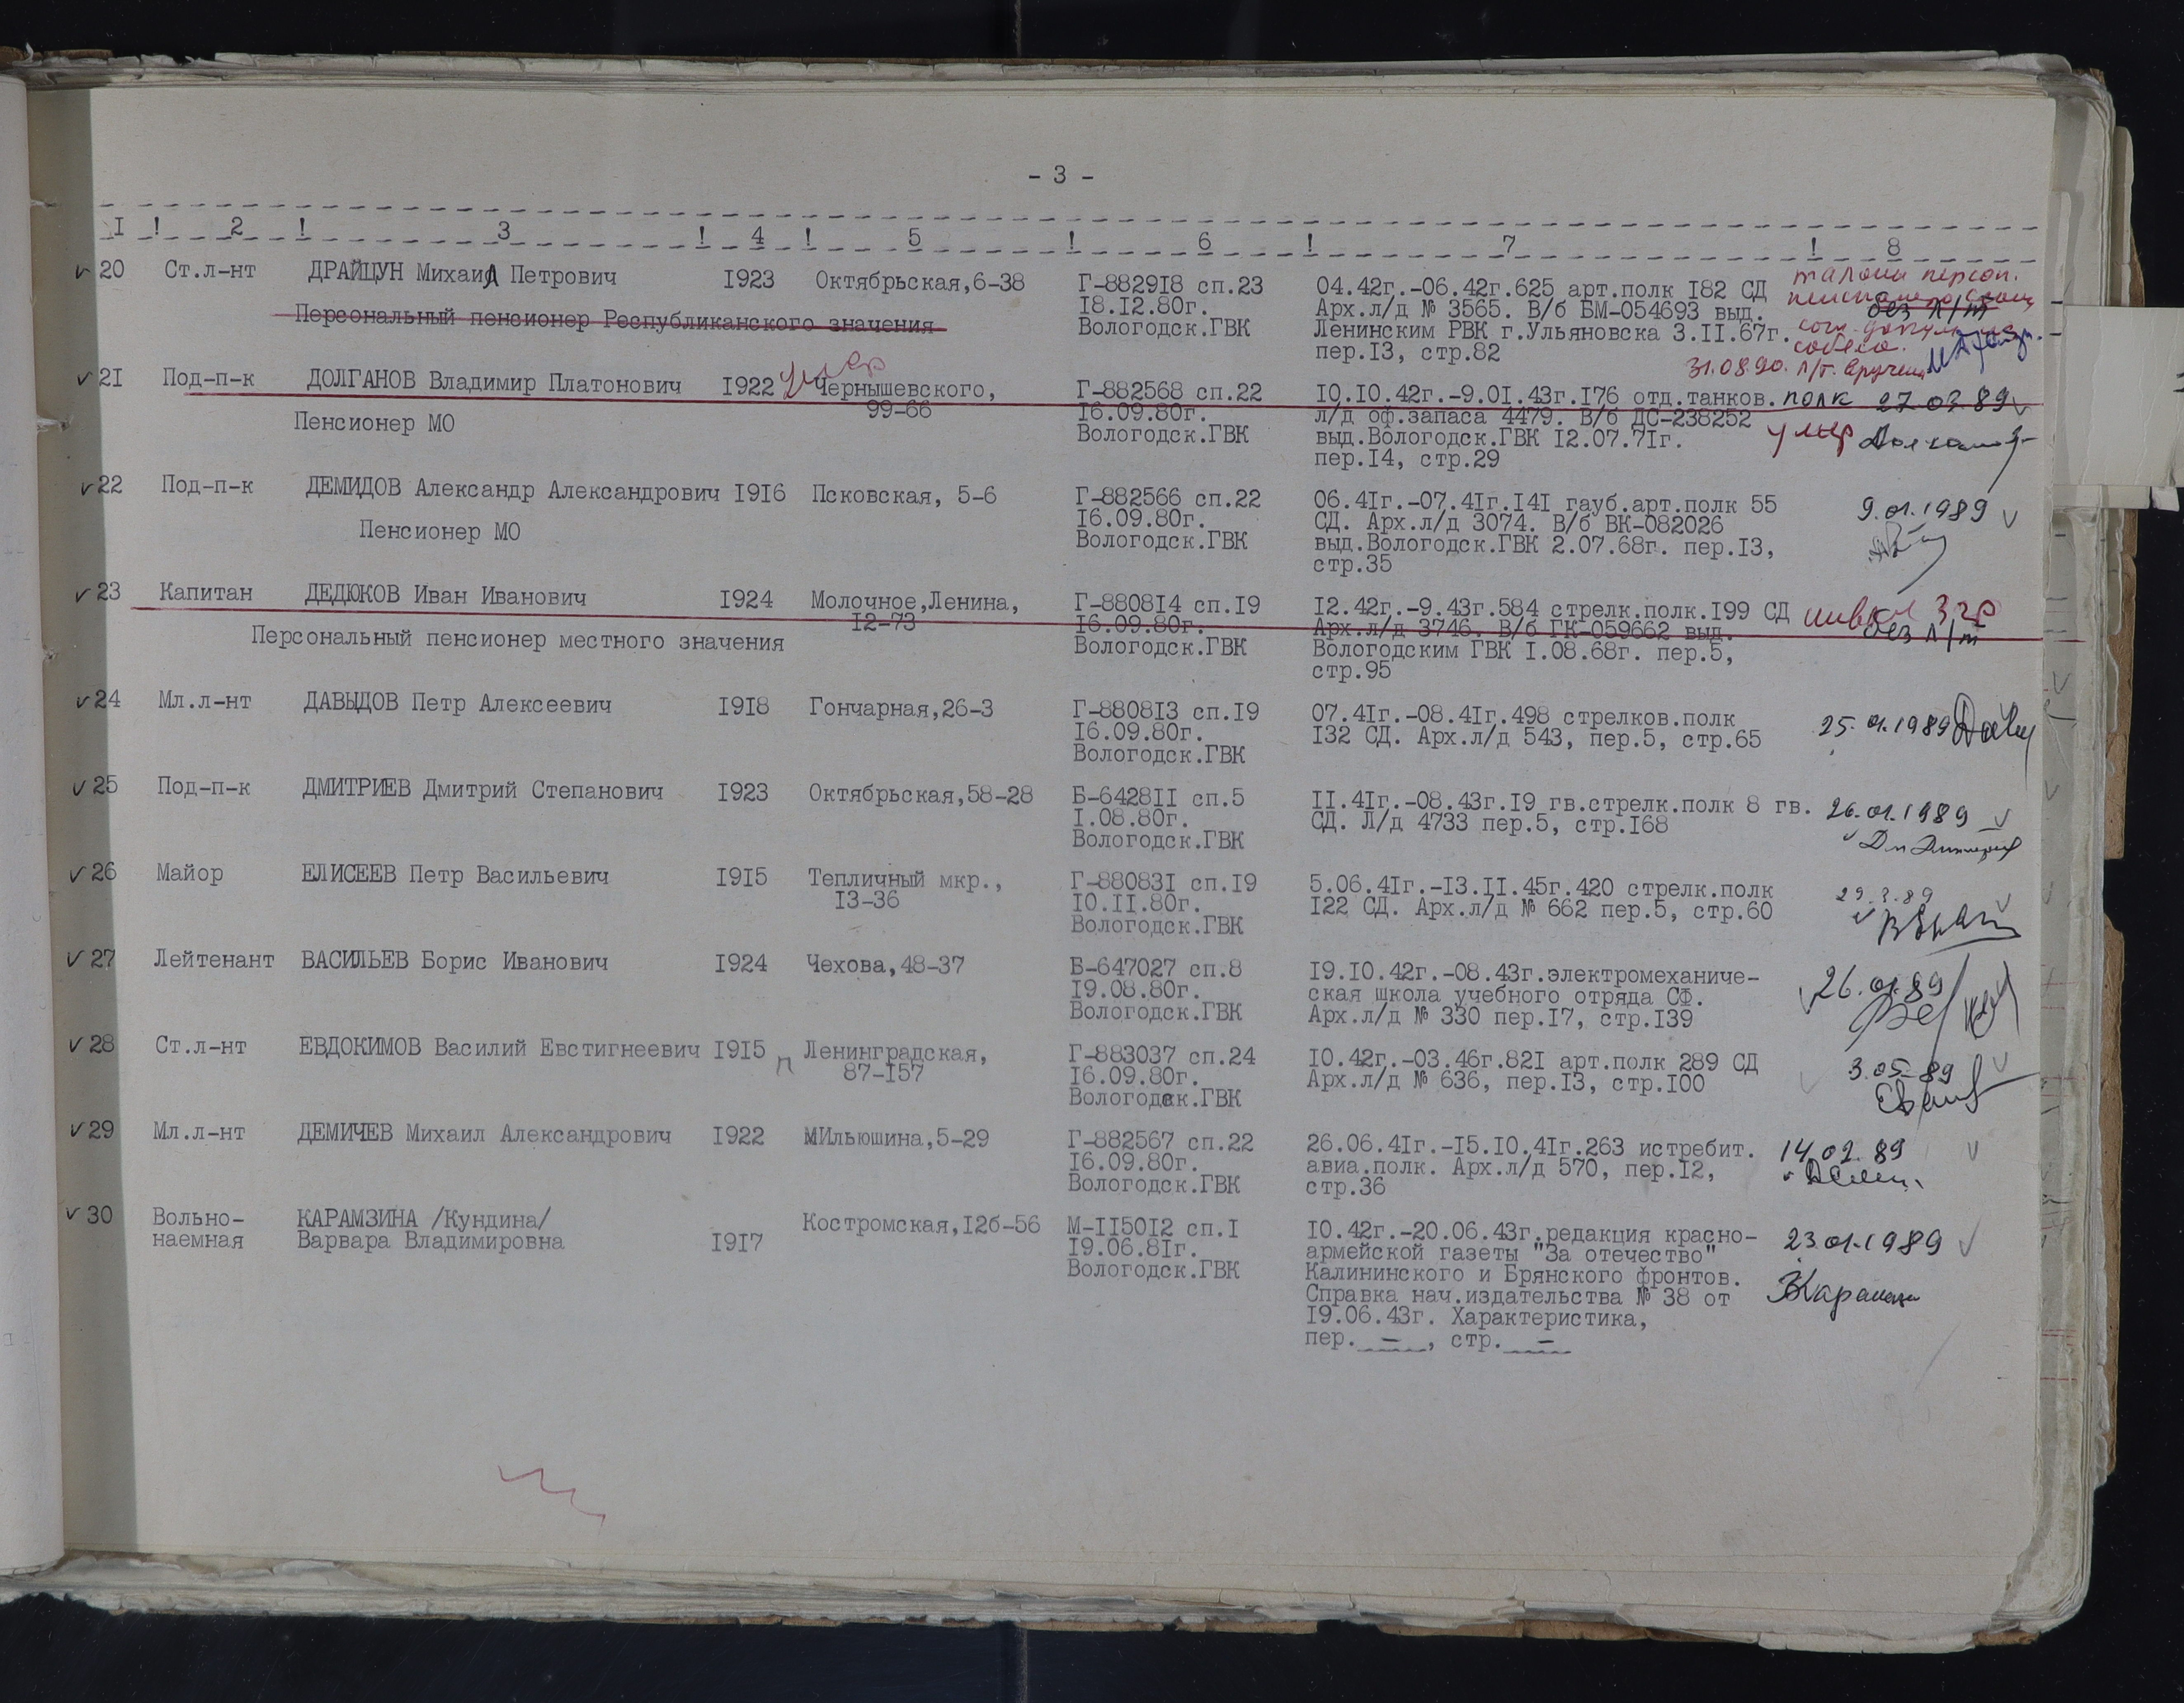 - 3 -
1 ! 2 ! 3 ! 4 ! 5 ! 6 ! 7 ! 8
20 Ст.л-нт ДРАЙЦУН Михаил Петрович 1923 Октябрьская,6-38 Г-882918 сп.23 04.42г.-06.42г.625 арт.полк 182 СД талоны персон.
18.12.80г. Арх.л/д № 3565. В/б БМ-054693 выд. без л/т
Персональный пенсионер Республиканского значения Вологодск.ГВК Ленинским РВК г.Ульяновска 3.11.67г.
пер.13, стр.82 собеса.
31.08.90. л/т. вручен
21 Под-п-к ДОЛГАНОВ Владимир Платонович 1922 умер Чернышевского, Г-882568 сп.22 10.10.42г.-9.01.43г.176 отд.танков.полк 27.02.89
99-66 16.09.80г. л/д оф.запаса 4479. В/б ДС-238252
Пенсионер МО Вологодск.ГВК выд.Вологодск.ГВК 12.07.71г. умер
пер.14, стр.29
22 Под-п-к ДЕМИДОВ Александр Александрович 1916 Псковская, 5-6 Г-882566 сп.22 06.41г.-07.41г.141 гауб.арт.полк 55 9.01.1989
16.09.80г. СД. Арх.л/д 3074. В/б ВК-082026
Пенсионер МО Вологодск.ГВК выд.Вологодск.ГВК 2.07.68г. пер.13,
стр.35
23 Капитан ДЕДЮКОВ Иван Иванович 1924 Молочное,Ленина, Г-880814 сп.19 12.42г.-9.43г.584 стрелк.полк.199 СД инвал 3 гр
12-73 16.09.80г. Арх.л/д 3746. В/б ГК-059662 выд. без л/т
Персональный пенсионер местного значения Вологодск.ГВК Вологодским ГВК 1.08.68г. пер.5,
стр.95
24 Мл.л-нт ДАВЫДОВ Петр Алексеевич 1918 Гончарная,26-3 Г-880813 сп.19 07.41г.-08.41г.498 стрелков.полк 25.01.1989
16.09.80г. 132 СД. Арх.л/д 543, пер.5, стр.65
Вологодск.ГВК
25 Под-п-к ДМИТРИЕВ Дмитрий Степанович 1923 Октябрьская,58-28 Б-642811 сп.5 11.41г.-08.43г.19 гв.стрелк.полк 8 гв. 26.01.1989
1.08.80г. СД. Л/д 4733 пер.5, стр.168
Вологодск.ГВК
26 Майор ЕЛИСЕЕВ Петр Васильевич 1915 Тепличный мкр., Г-880831 сп.19 5.06.41г.-13.11.45г.420 стрелк.полк 29.3.89
13-36 10.11.80г. 122 СД. Арх.л/д № 662 пер.5, стр.60
Вологодск.ГВК
27 Лейтенант ВАСИЛЬЕВ Борис Иванович 1924 Чехова,48-37 Б-647027 сп.8 19.10.42г.-08.43г.электромеханиче- 26.01.89
19.08.80г. ская школа учебного отряда СФ.
Вологодск.ГВК Арх.л/д № 330 пер.17, стр.139
28 Ст.л-нт ЕВДОКИМОВ Василий Евстигнеевич 1915 п Ленинградская, Г-883037 сп.24 10.42г.-03.46г.821 арт.полк 289 СД 3.05-89
87-157 16.09.80г. Арх.л/д № 636, пер.13, стр.100
Вологодск.ГВК
29 Мл.л-нт ДЕМИЧЕВ Михаил Александрович 1922 МИльюшина,5-29 Г-882567 сп.22 26.06.41г.-15.10.41г.263 истребит. 14.02.89
16.09.80г. авиа.полк. Арх.л/д 570, пер.12,
Вологодск.ГВК стр.36
30 Вольно- КАРАМЗИНА /Кундина/ Костромская,12б-56 М-115012 сп.1 10.42г.-20.06.43г.редакция красно- 23.01.1989
наемная Варвара Владимировна 1917 19.06.81г. армейской газеты "За отечество"
Вологодск.ГВК Калининского и Брянского фронтов.
Справка нач.издательства № 38 от
19.06.43г. Характеристика,
пер. — , стр. —